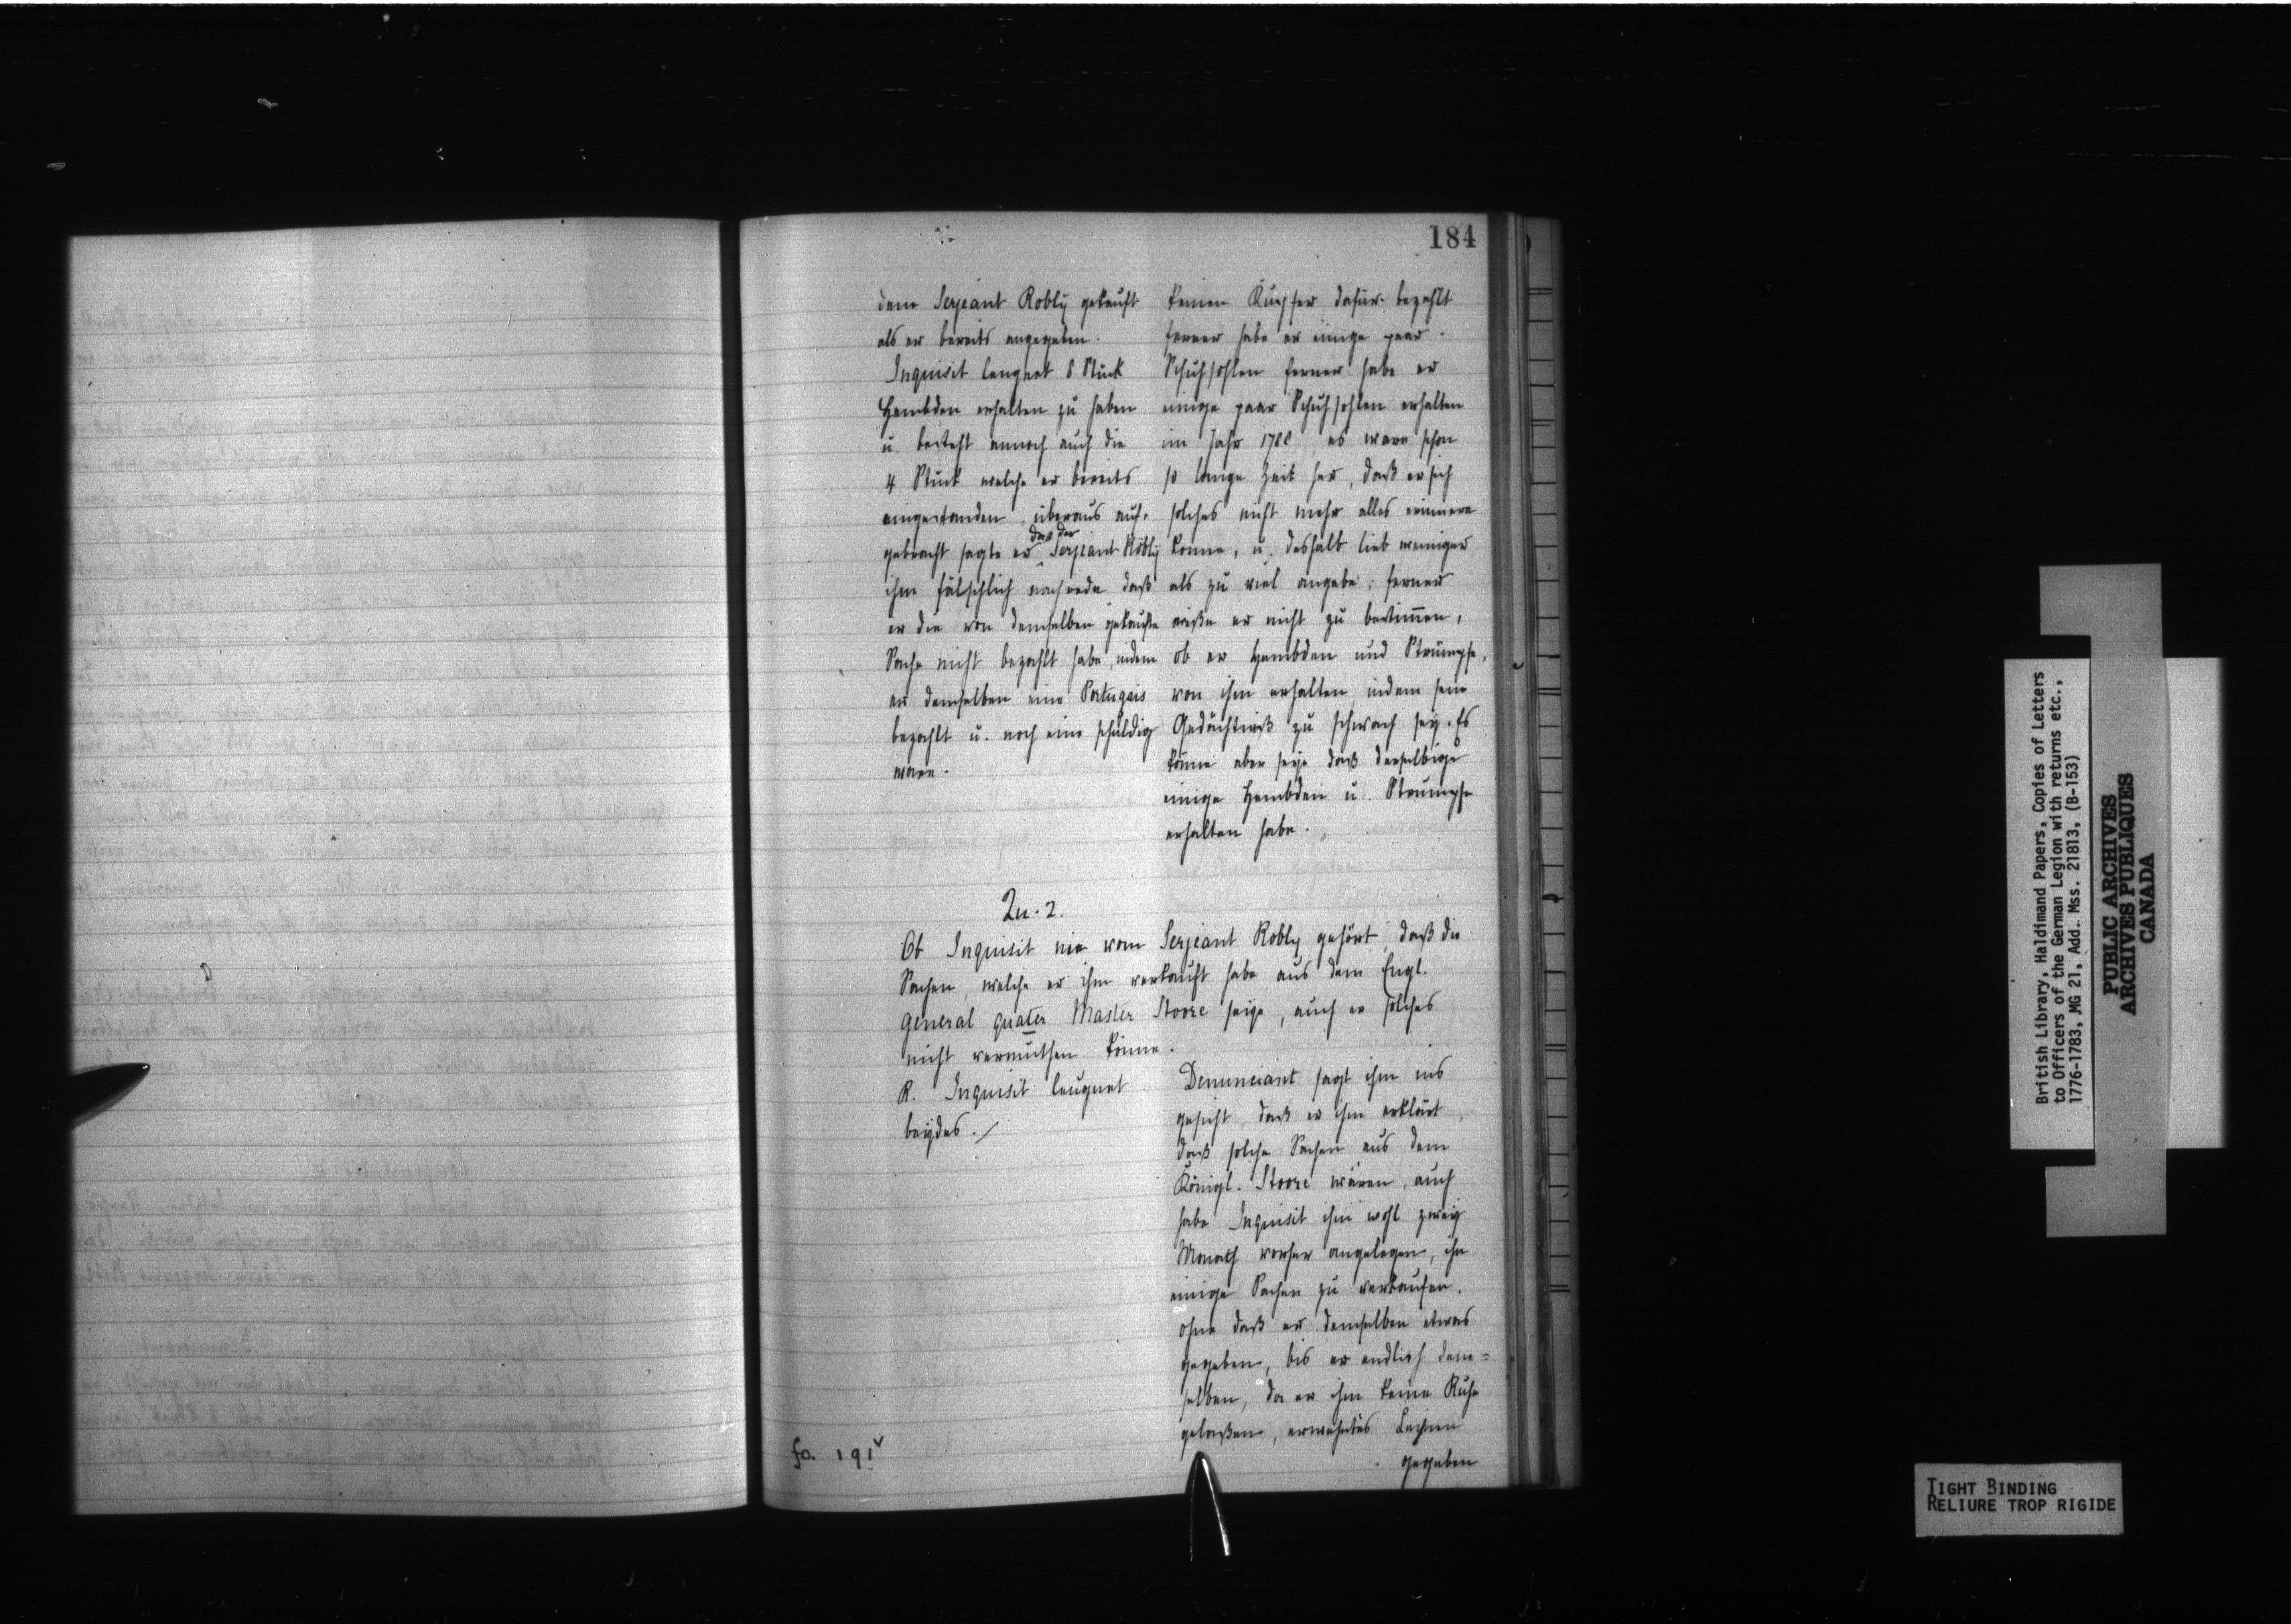 184
dem Serjeant Robly gekauft
als er bereits angegeben.
Inquisit leugnet 8 Stück
Hembden erhalten zu haben
u. besteht annoch auch die
4 Stück welche er bereits
eingestanden, überaus auf-
gebracht sagte er daß der Serjeant Robly
ihm fälschlich nachrede daß
er die von demselben gekaufte
Sache nicht bezahlt habe, indem
er demselben eine Portugais
bezahlt u. noch eine schuldig
ware.
keinen Kupfer dafür bezahlt
ferner habe er einige paar
Schuhsohlen ferner habe er
einige paar Schuhsohlen erhalten
im Jahr es ware schon
so lange Zeit her, daß er sich
solches nicht mehr alles erinnere
konne, u. deshalb lieb weniger
als zu viel angebe; ferner
wiße er nicht zu bestimen,
ob er Hembden und Strümpfe,
von ihm erhalten indem sein
Gedächtniß zu schwach sey. Es
könne aber seye daß derselbige
einige Hembden u. Strumpfe
erhalten habe.
Qu. 2.
Ob Inquisit nie vom Serjeant Robly gehört, daß die
Sachen, welche er ihm verkauft habe aus dem Engl.
General quater Master Stoore seye, auch er solches
nicht vermuthen könne.
R. Inquisit leugnet
beydes./
Denunciant sagt ihm ins
gesicht, daß er ihm erklärt,
daß solche Sachen aus dem
Königl. Stoore wären, auch
habe Inquisit ihm wohl zwey
Monath vorher angelegen, ihm
einige Sachen zu verkaufen.
ohne daß er demselben etwas
gegeben, bis er endlich dem=
selben, da er ihm keine Ruhe
gelaßen, erwehntes Leinen
gegeben
fo. 191v
British Library, Haldimand Papers, Copies of Letters
to Officers of the German Legion with returns etc.,
1776-1783, MG 21, Add. Mss. 21813, (B-153)
PUBLIC ARCHIVES
ARCHIVES PUBLIQUES
CANADA
TIGHT BINDING
RELIURE TROP RIGIDE